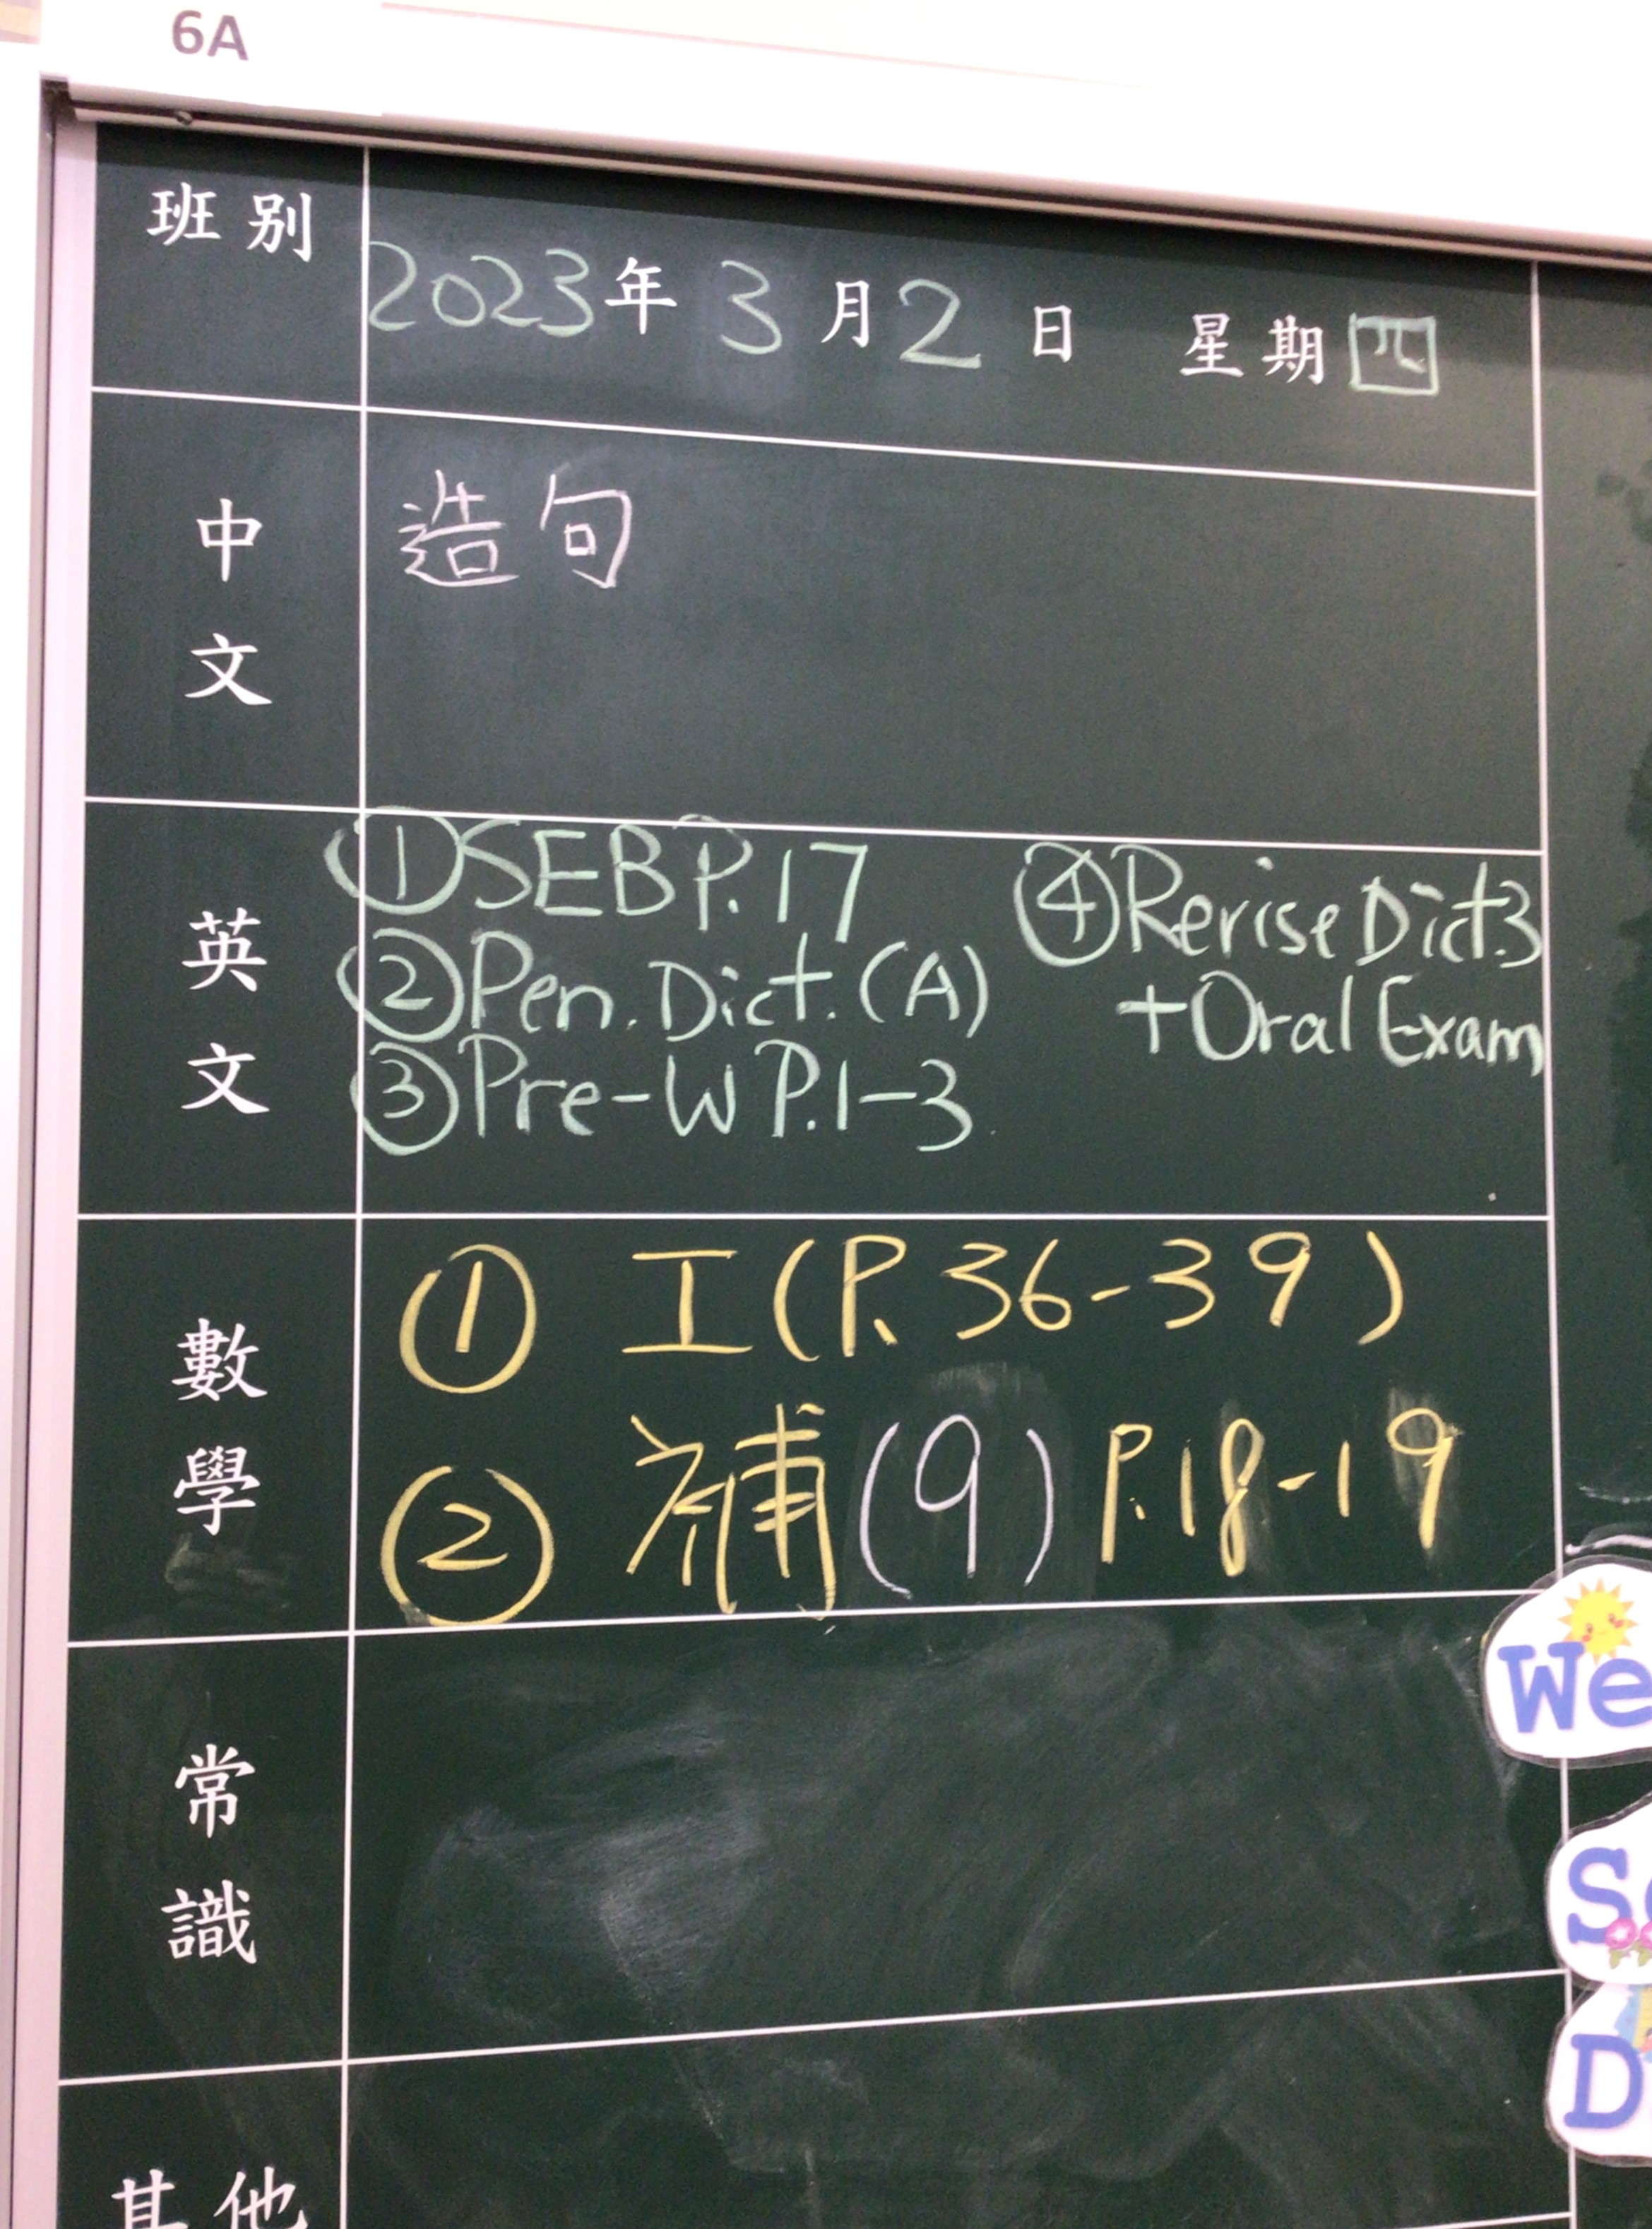 6A
班别
2023年 3月2日 星期四
中文
造句
英文
①SEB P.17
②Pen. Dict. (A)
③Pre-W P.1-3
④Revise Dict.3
+Oral Exam
數學
① 工(P. 36-39)
② 補(9) P.18-19
常識
其他
We
S
D